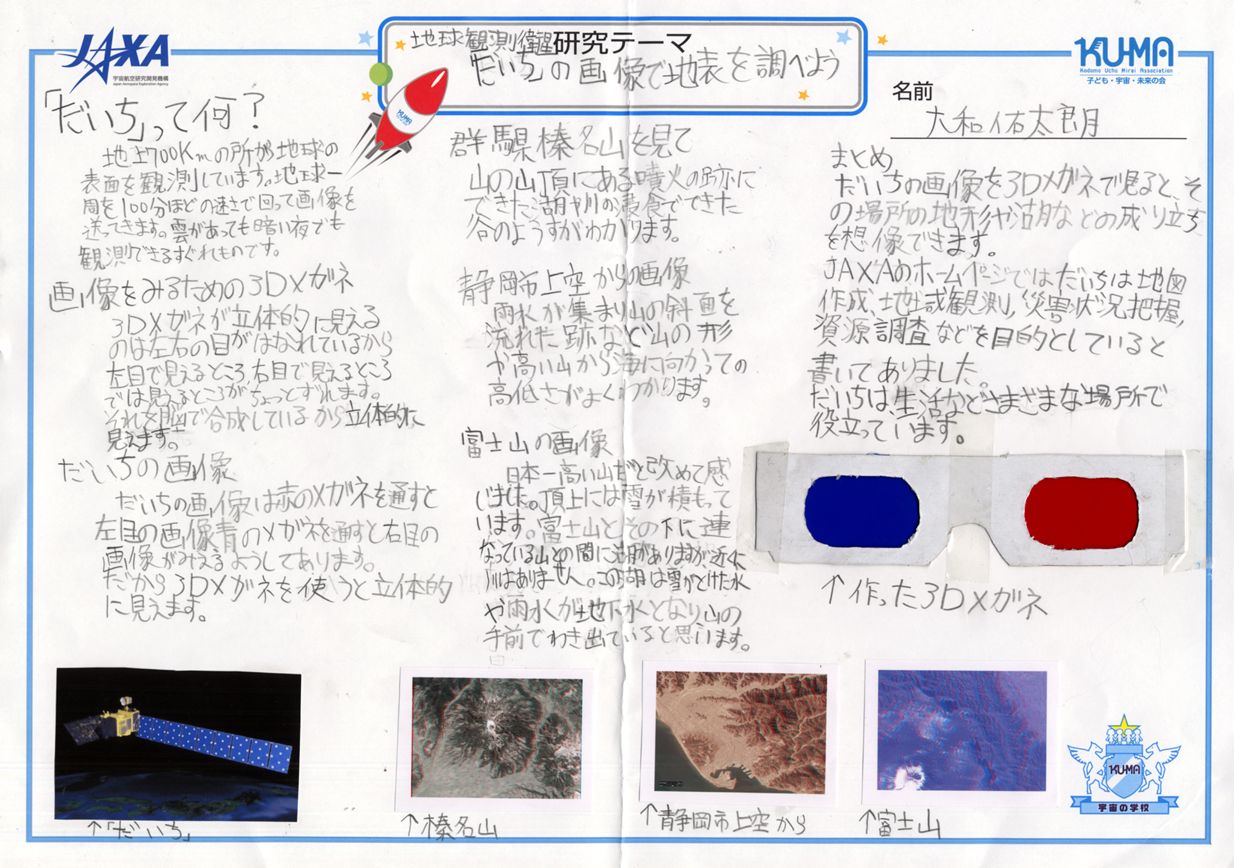 JAXA
宇宙航空研究開発機構
Japan Aerospace Exploration Agency
地球観測衛星研究テーマ
「だいち」の画像で地表を調べよう
KU-MA
Kodomo Uchu Mirai Association
子ども・宇宙・未来の会
名前
大和佑太郎
「だいち」って何？
地上700Kmの所から地球の
表面を観測しています。地球一
周を100分ほどの速さで回って画像を
送ってきます。雲があっても暗い夜でも
観測できるすぐれものです。
画像をみるための3Dメガネ
3Dメガネが立体的に見える
のは左右の目がはなれているから
左目で見えるところ右目で見えるところ
では見えるところがちょっとずれます。
それを脳で合成しているから立体的に
見えます。
だいちの画像
だいちの画像は赤のメガネを通すと
左目の画像青のメガネを通すと右目の
画像がみえるようしてあります。
だから3Dメガネを使うと立体的
に見えます。
群馬県榛名山を見て
山の山頂にある噴火の跡に
できた湖や川の浸食でできた
谷のようすがわかります。
静岡市上空からの画像
雨水が集まり山の斜面を
流れた跡など山の形
や高い山から海に向かっての
高低さがよくわかります。
富士山の画像
日本一高い山だと改めて感
じました。頂上には雪が積もって
います。富士山とその下に連
なっている山との間に湖がありますが、近くに
川はありません。この湖は雪がとけた水
や雨水が地下水となり山の
手前でわき出ていると思います。
まとめ
だいちの画像を3Dメガネで見ると、そ
の場所の地形や湖などの成り立ち
を想像できます。
JAXAのホームページではだいちは地図
作成、地域観測,災害状況把握,
資源調査などを目的としていると
書いてありました。
だいちは、生活などさまざまな場所で
役立っています。
↑作った3Dメガネ
↑「だいち」
↑榛名山
↑静岡市上空から
↑富士山
KU-MA
宇宙の学校